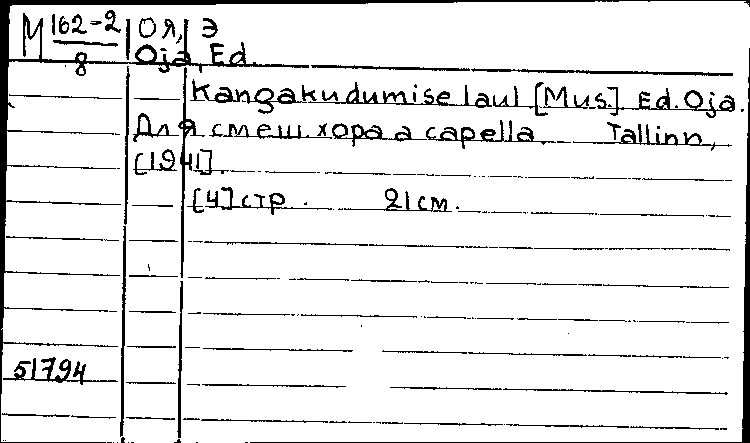 М 162-2/8
Оя, Э
Oja, Ed.
Kangakudumise laul [Mus.]. Ed. Oja.
Для смеш. хора a capella. Tallinn,
[1941].
[4] стр. 21 см.
51794